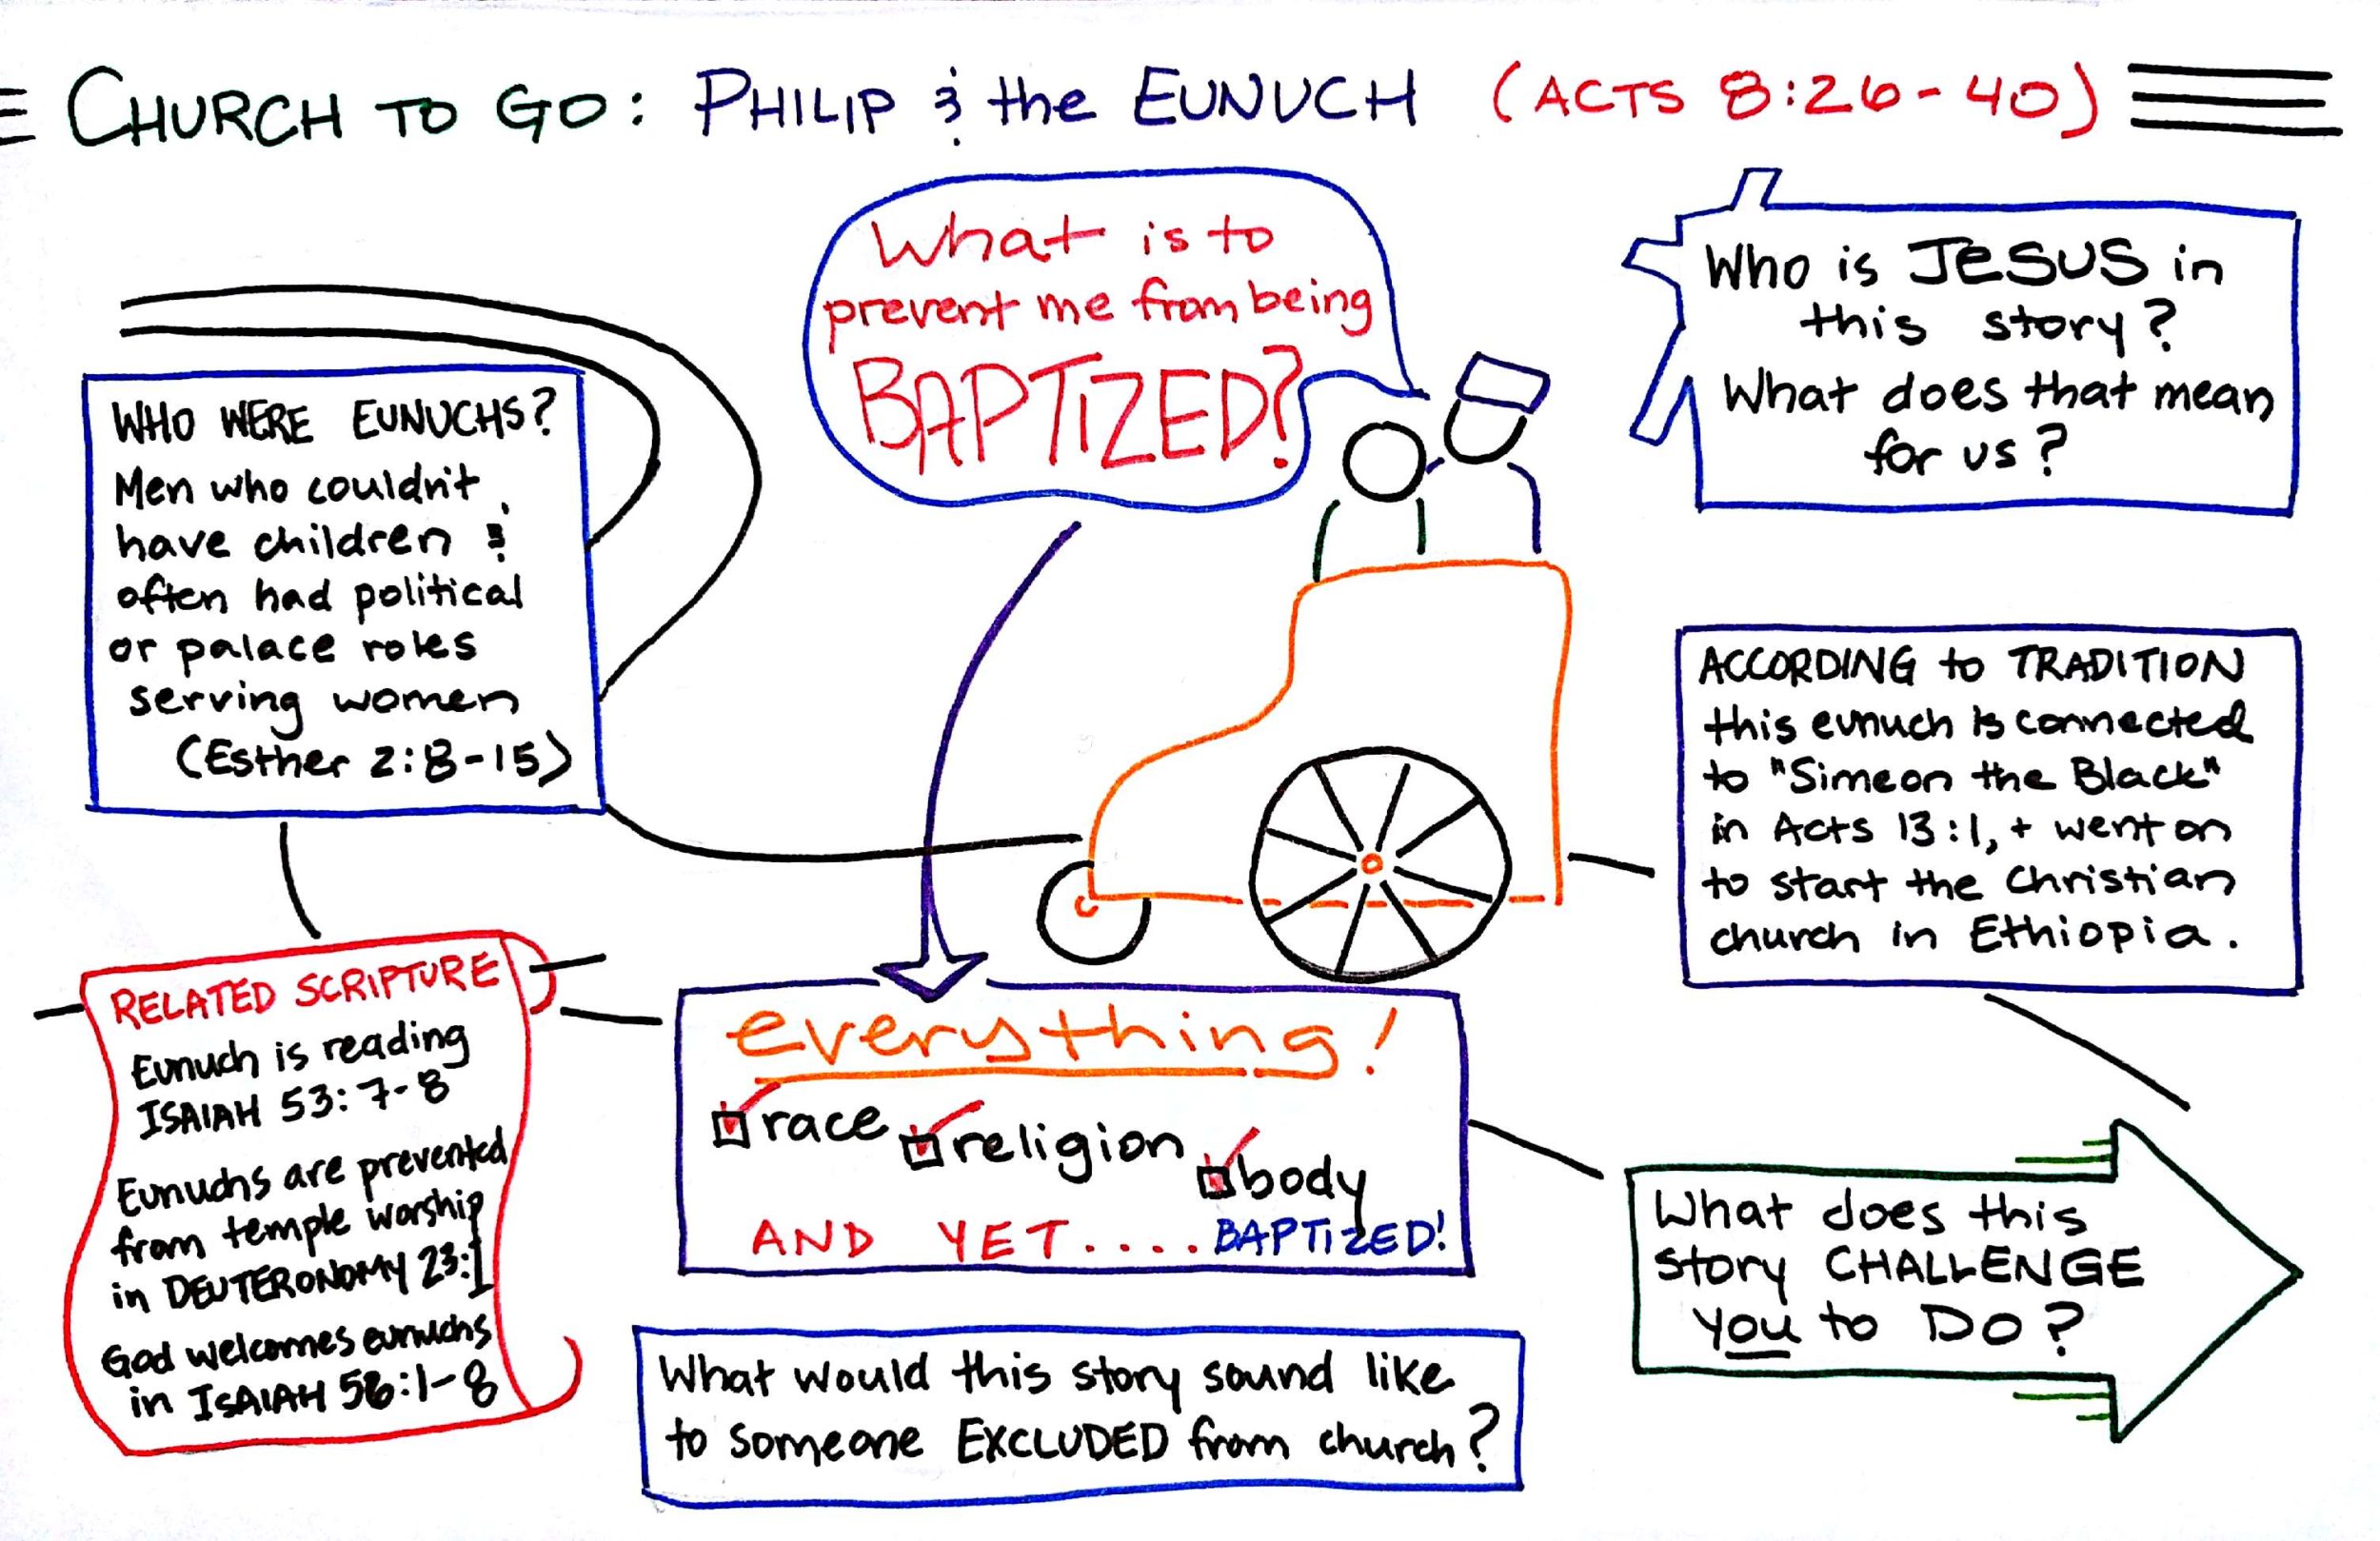 CHURCH TO GO: PHILIP & the EUNUCH (ACTS 8:26-40)
What is to
prevent me from being
BAPTIZED?
Who is JESUS in
this story?
What does that mean
for us?
WHO WERE EUNUCHS?
Men who couldn't
have children &
often had political
or palace roles
serving women
(Esther 2:8-15)
ACCORDING to TRADITION
this eunuch is connected
to "Simeon the Black"
in Acts 13:1, + went on
to start the Christian
church in Ethiopia.
RELATED SCRIPTURE
Eunuch is reading
ISAIAH 53:7-8
Eunuchs are prevented
from temple worship
in DEUTERONOMY 23:1
God welcomes eunuchs
in ISAIAH 56:1-8
everything!
race religion body
AND YET.... BAPTIZED!
What does this
story CHALLENGE
you to DO?
What would this story sound like
to someone EXCLUDED from church?